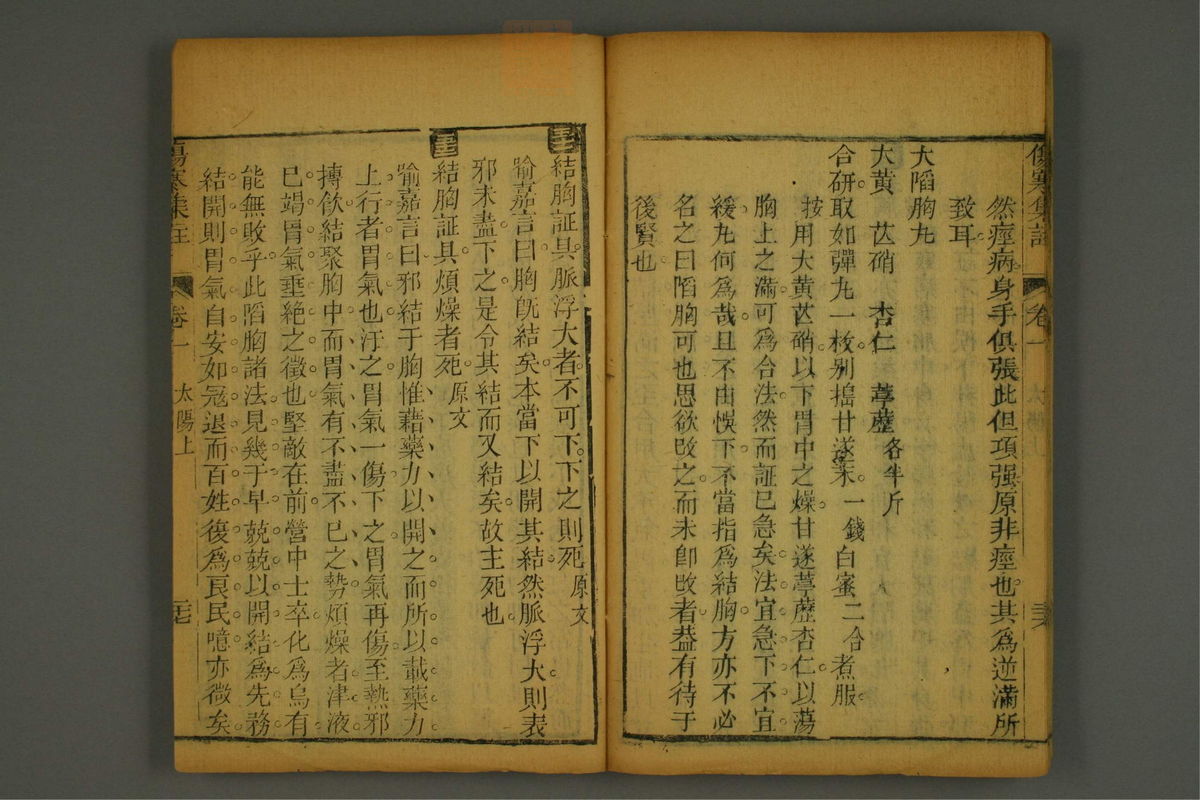 傷寒集註 卷一 太陽上 三六
然痙病身手俱張此但項强原非痙也其爲逆滿所
致耳
大陷胸丸
大黃 芒硝 杏仁 葶藶各半斤
合研取如彈丸一枚别搗甘遂末一錢白蜜二合煮服
按用大黃芒硝以下胃中之燥甘遂葶藶杏仁以蕩
胸上之滿可爲合法然而証已急矣法宜急下不宜
緩丸何爲哉且不由悞下不當指爲結胸方亦不必
名之曰陷胸可也愚欲改之而未卽改者葢有待于
後賢也
結胸証具脈浮大者不可下下之則死原文
喻嘉言曰胸旣結矣本當下以開其結然脈浮大則表
邪未盡下之是令其結而又結矣故主死也
結胸証具煩燥者死原文
喻嘉言曰邪結于胸惟藉藥力以開之而所以載藥力
上行者胃氣也汗之胃氣一傷下之胃氣再傷至熱邪
摶飲結聚胸中而胃氣有不盡不已之勢煩燥者津液
已竭胃氣垂絶之徵也堅敵在前營中士卒化爲烏有
能無敗乎此陷胸諸法見幾于早兢兢以開結爲先務
結開則胃氣自安如冦退而百姓復爲良民噫亦微矣
傷寒集註 卷一 太陽上 三七